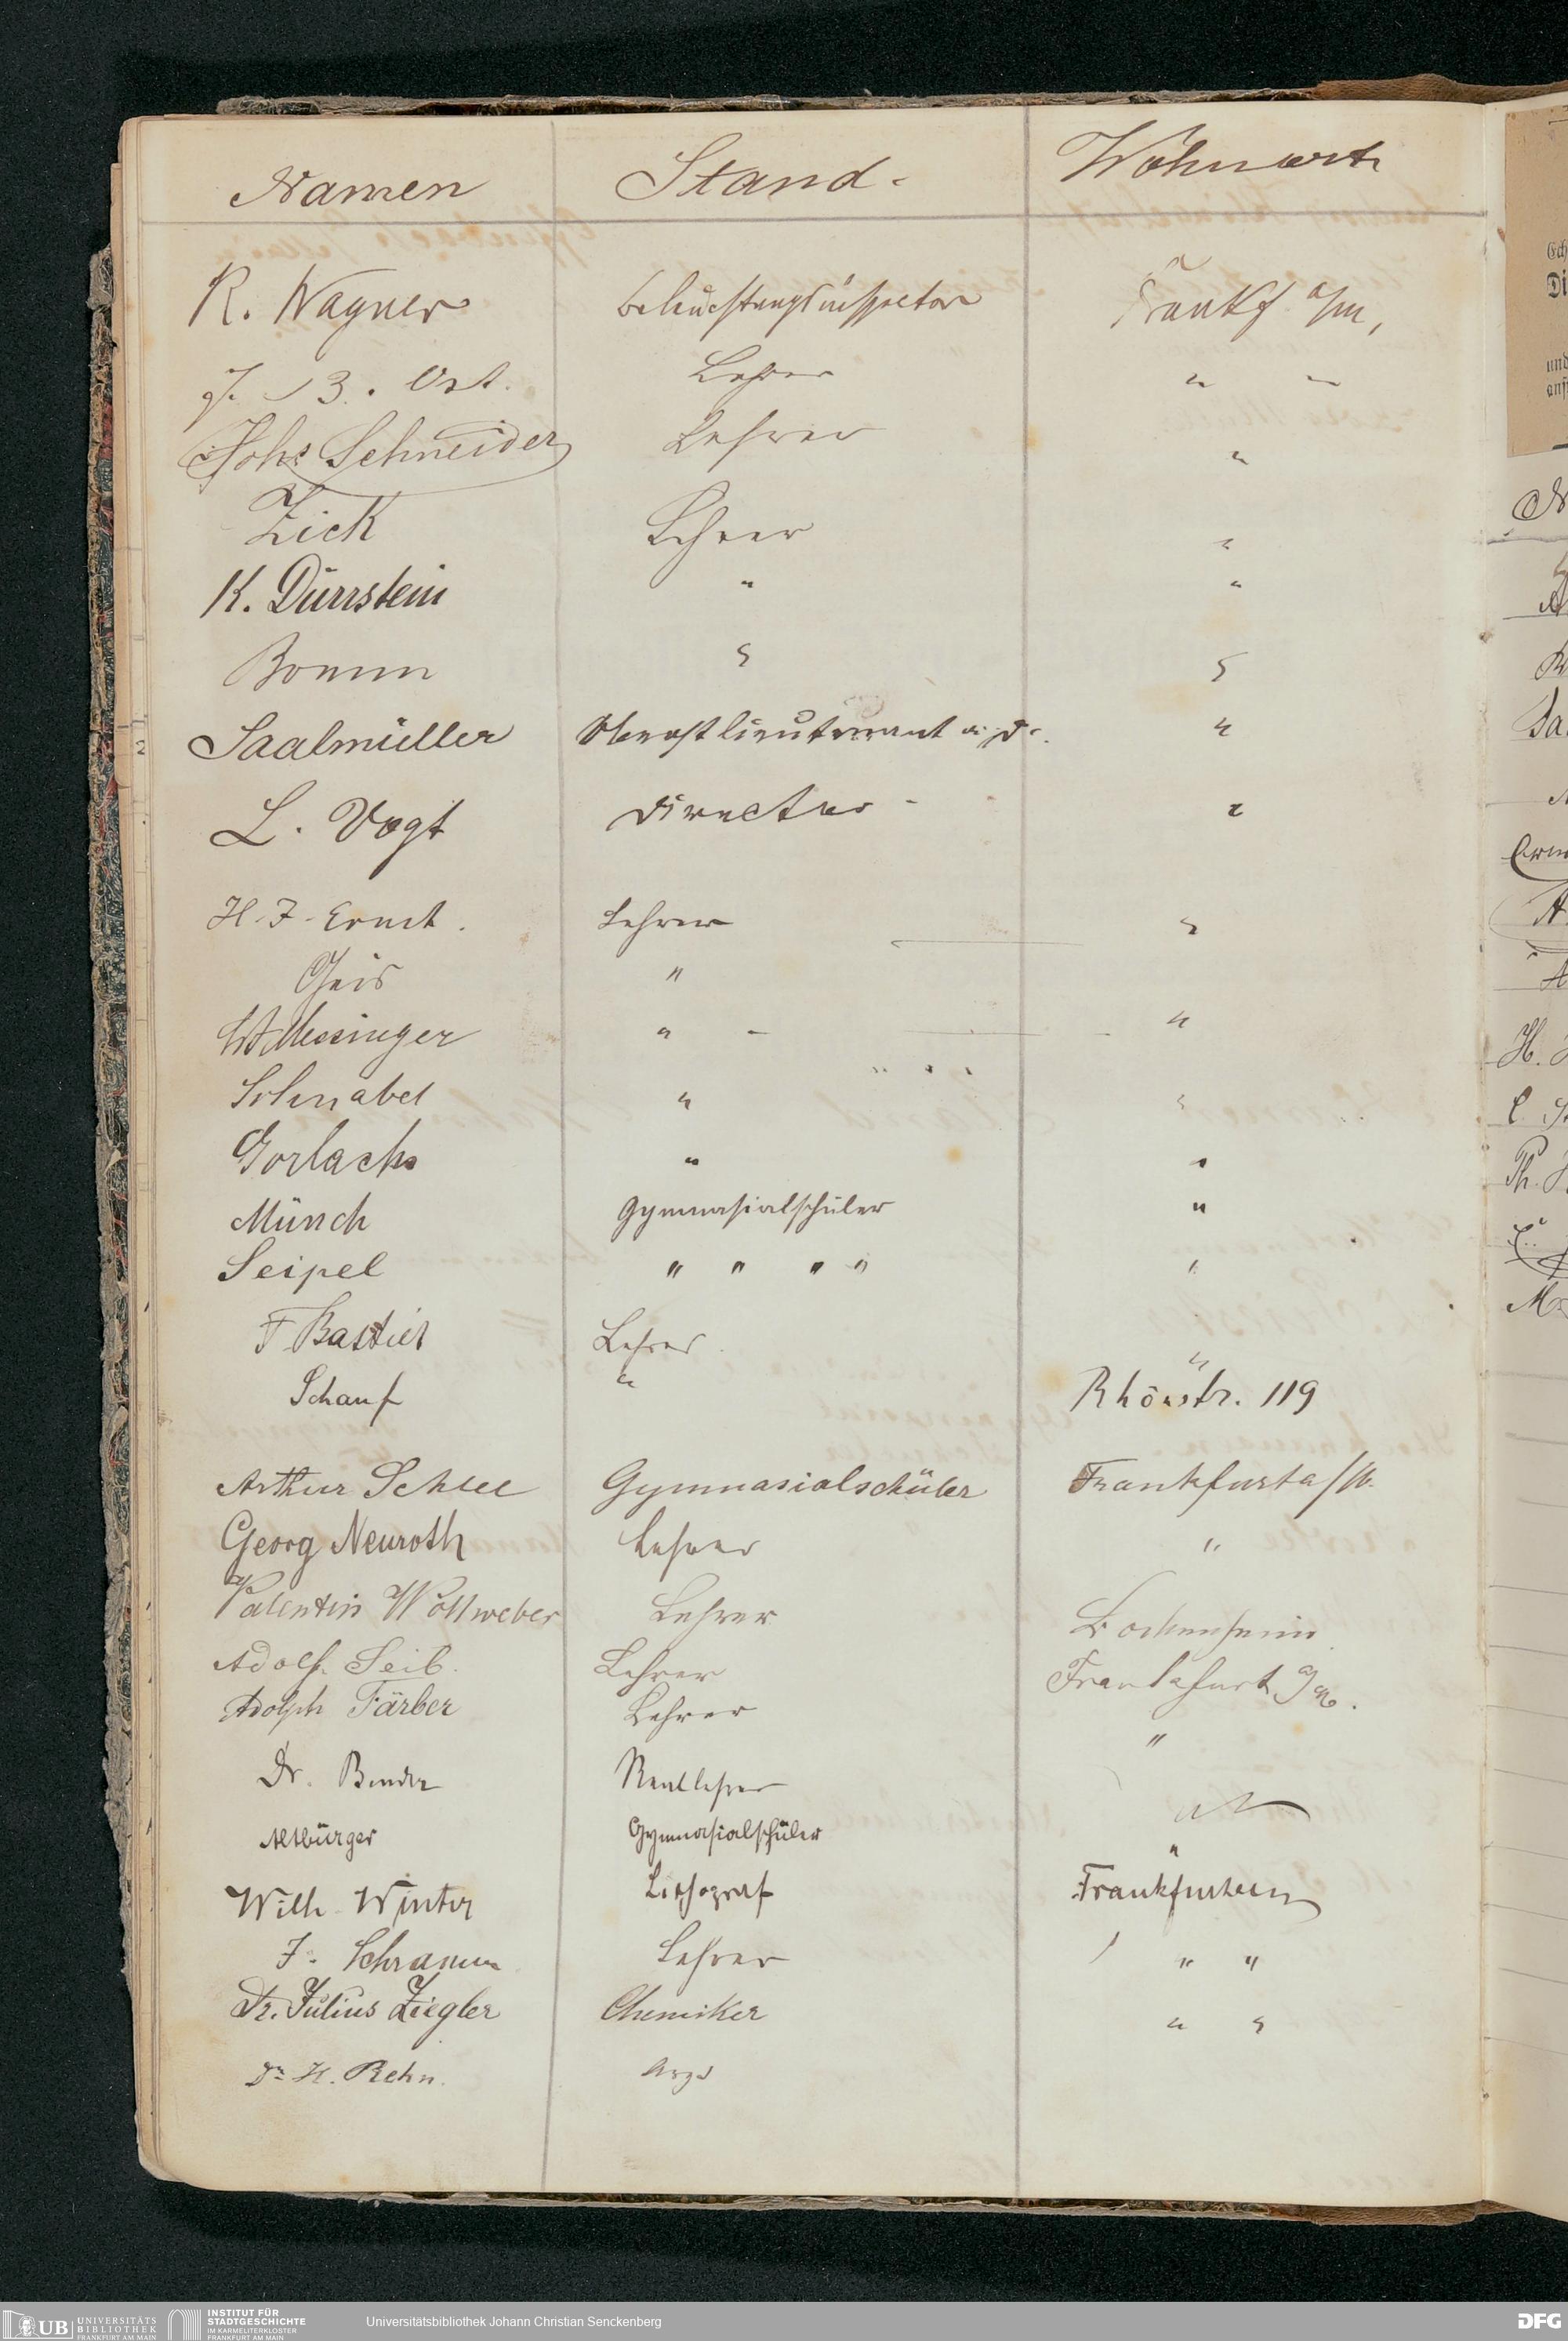 Namen Stand. Wohnort
R. Wagner Beleuchtungsinspector Frankf a/m,
J. B. Ost. Lehrer " "
Johs Schneider Lehrer "
Zick Lehrer "
K. Dürrstein " "
Bomm " "
Saalmüller Oberstlieutenant a. D. "
L. Vogt Director "
H. F. Ernst. Lehrer "
Geis "
Messinger " "
Schnabel " "
Gorlach " "
Münch Gymnasialschüler "
Seipel " " " " "
F Bastier Lehrer "
Schauf " Rhönstr. 119
Arthur Schlee Gymnasialschüler Frankfurt a/M.
Georg Neuroth Lehrer "
Valentin Wollweber Lehrer Bockenheim
Adolf Seib. Lehrer Frankfurt a/M.
Adolph Färber Lehrer "
Dr. Binder Reallehrer
Altbürger Gymnasialschüler "
Wilh. Winter Lithograf Frankfurt
F. Schramm Lehrer " "
Dr. Julius Ziegler Chemiker " "
Dr H. Rehn. Arzt
2
Ech
Di
und
anf
UB UNIVERSITÄTS
BIBLIOTHEK
FRANKFURT AM MAIN
INSTITUT FÜR
STADTGESCHICHTE
IM KARMELITERKLOSTER
FRANKFURT AM MAIN
Universitätsbibliothek Johann Christian Senckenberg
DFG